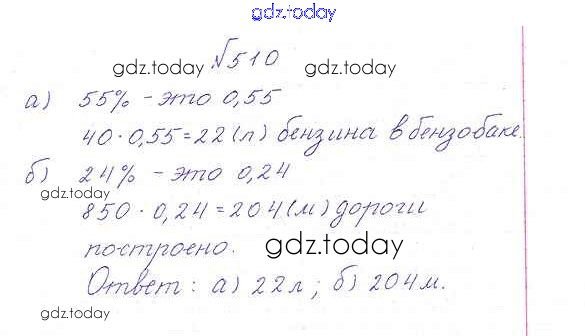 gdz.today
№510
gdz.today gdz.today
а) 55% - это 0,55
40 · 0,55 = 22 (л) бензина в бензобаке.
б) 24% - это 0,24
gdz.today
850 · 0,24 = 204 (м) дороги
построено.
gdz.today
Ответ: а) 22 л; б) 204 м.
gdz.today